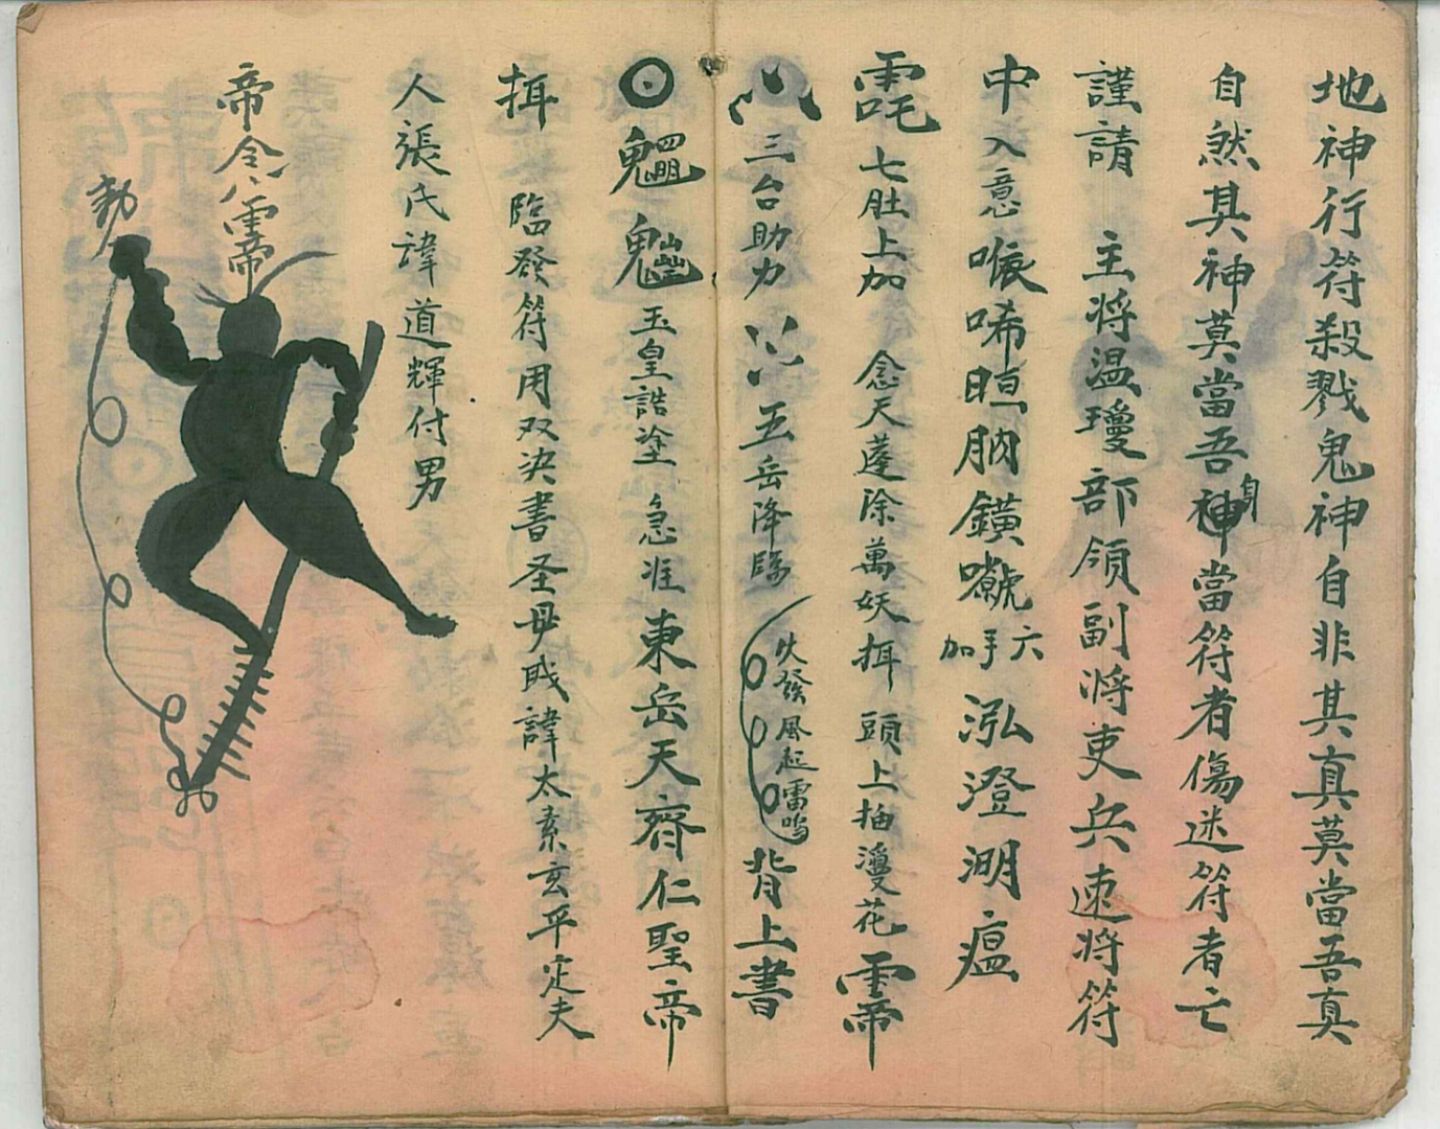 地神行符殺戮鬼神自非其真莫當吾真
自然其神莫當吾神身當符者傷迷符者亡
謹請 主將温瓊部領副將吏兵速將符
中入意 唏 肭鐄 六手加泓澄湖瘟
七肚上加 念天蓬除萬妖 頭上抽 花
三台助力 五岳降臨 發風起雷鳴 背上書
玉皇誥塗 急准東岳天齊仁聖帝
臨發符用双决書圣母 諱太素玄平定夫
人張氏諱道輝付男
帝令
勅